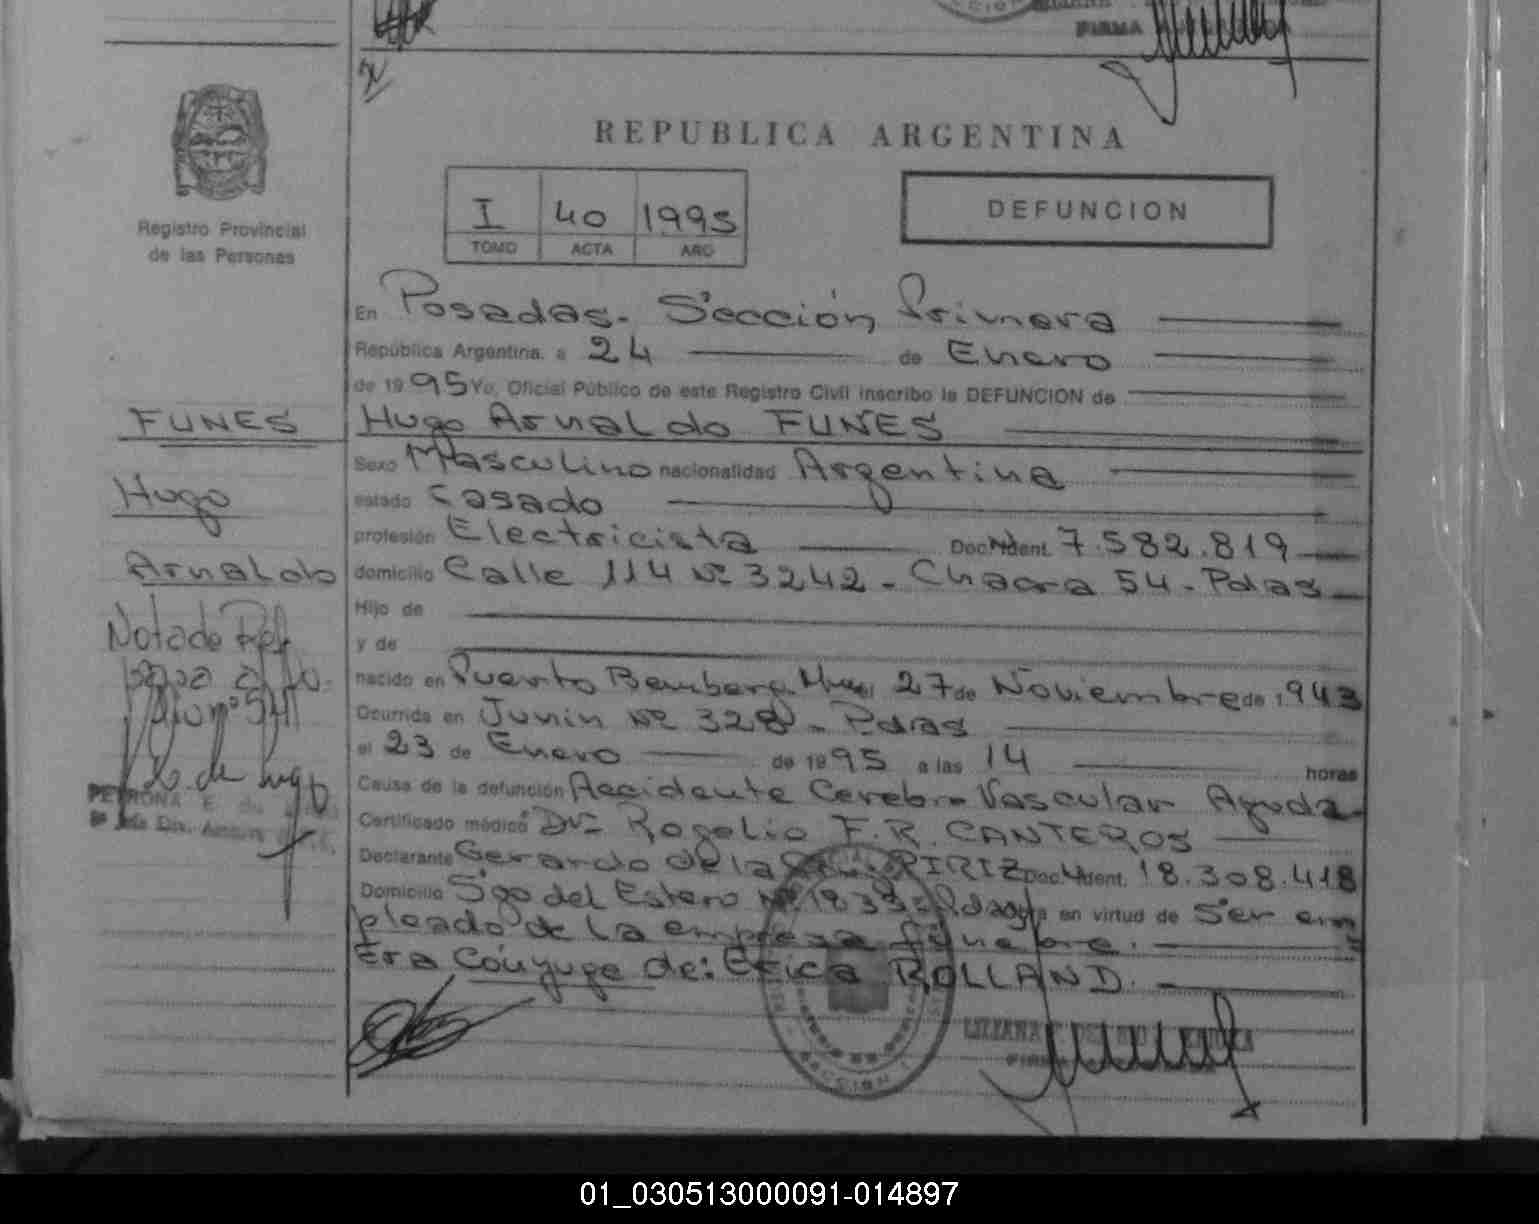 FIRMA
REPUBLICA ARGENTINA
Registro Provincial
de las Personas
I 40 1995
TOMO ACTA AÑO
DEFUNCION
En Posadas. Sección Primera
República Argentina, a 24 de Enero
de 1995 Yo, Oficial Público de este Registro Civil inscribo la DEFUNCION de
FUNES
Hugo
Arnaldo
Hugo Arnaldo FUNES
Sexo Masculino nacionalidad Argentina
estado Casado
profesión Electricista Doc. Ident. 7.582.819
domicilio Calle 114 Nº 3242 - Chacra 54 - Pdas
Hijo de
y de
nacido en Puerto Bemberg, Mnes el 27 de Noviembre de 1943
Ocurrida en Junin Nº 328 - Pdas
el 23 de Enero de 1995 a las 14 horas
Causa de la defunción Accidente Cerebro Vascular Aguda
Certificado médico Dr. Rogelio F.R. CANTEROS
Declarante Gerardo de la RIRIZ Doc. Ident. 18.308.418
Domicilio Sgo del Estero Nº 1833 - Pdas y/a en virtud de Ser em
pleado de la empresa fúnebre.
Era Cónyuge de: Erica ROLLAND.
Nota de Ref.
PETRONA E. de
LILIANA
01_030513000091-014897